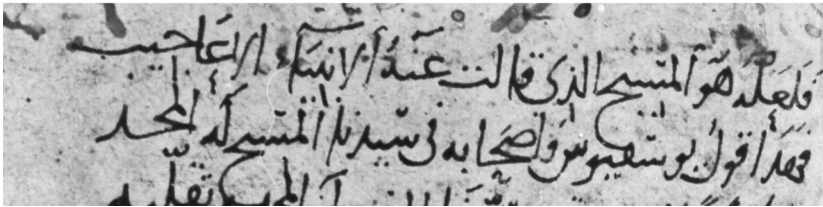 فلعله هو المسيح الذي قالت عنه الانبياء الاعاجيب
فهذا قول يوسفيوس واصحابه في سيدنا المسيح له المجد